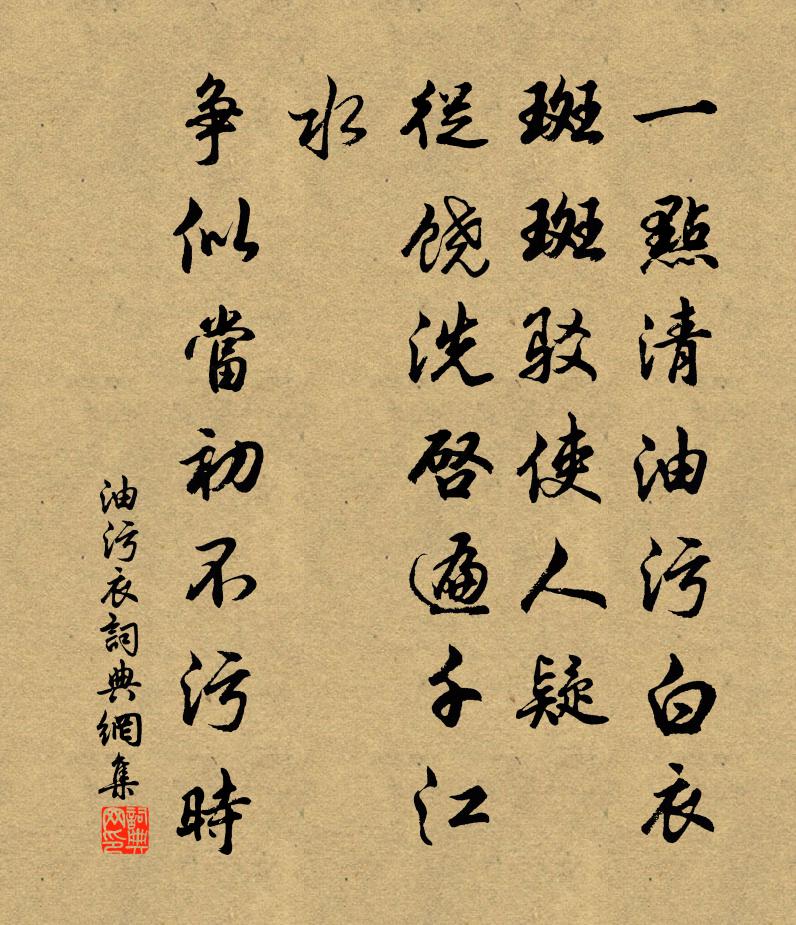 一點清油污白衣
斑斑驳使人疑
從饶洗啓遍千江
水
争似當初不污時
油污衣詞典網集
詞典网印